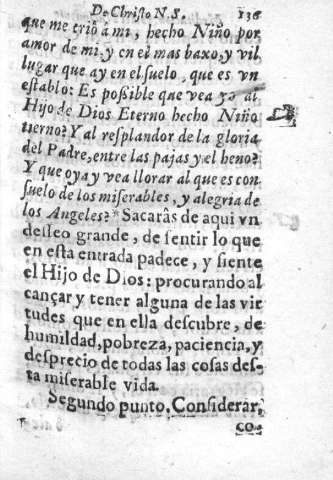 De Christo N. S. 136
que me criò à mi, hecho Niño por
amor de mi, y en el mas baxo, y vil
lugar que ay en el suelo, que es vn
establo: Es possible que vea yo al
Hijo de Dios Eterno hecho Niño
tierno? Y al resplandor de la gloria
del Padre, entre las pajas y el heno?
Y que oya y vea llorar al que es con
suelo de los miserables, y alegria de
los Angeles? * Sacaràs de aqui vn
desseo grande, de sentir lo que
en esta entrada padece, y siente
el Hijo de Dios: procurando al
cançar y tener alguna de las vir
tudes que en ella descubre, de
humildad, pobreza, paciencia, y
desprecio de todas las cosas des-
ta miserable vida.
Segundo punto. Considerar,
co-